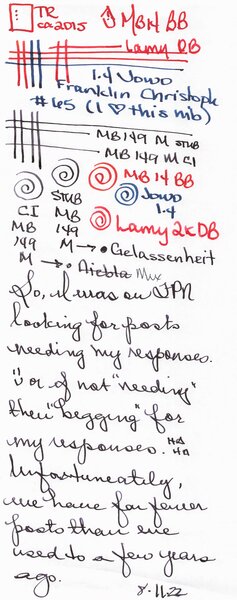 TR
ca 2015
MB 14 BB
Lamy OB
1.4 Jowo
Franklin Christoph
#65 (I ♡ this nib)
MB 149 M STUB
MB 149 M CI
MB 14 BB
Jowo
1.4
Lamy 2K OB
CI
MB
149
M → • Niebla Mix
STUB
MB
149
M → • Gelassenheit
So, I was on FPN
looking for posts
needing my responses.
"J or if not "needing"
then "begging" for
my responses. HA
HA
Unfortunately,
we have far fewer
posts than we
used to a few years
ago.
8.11.22